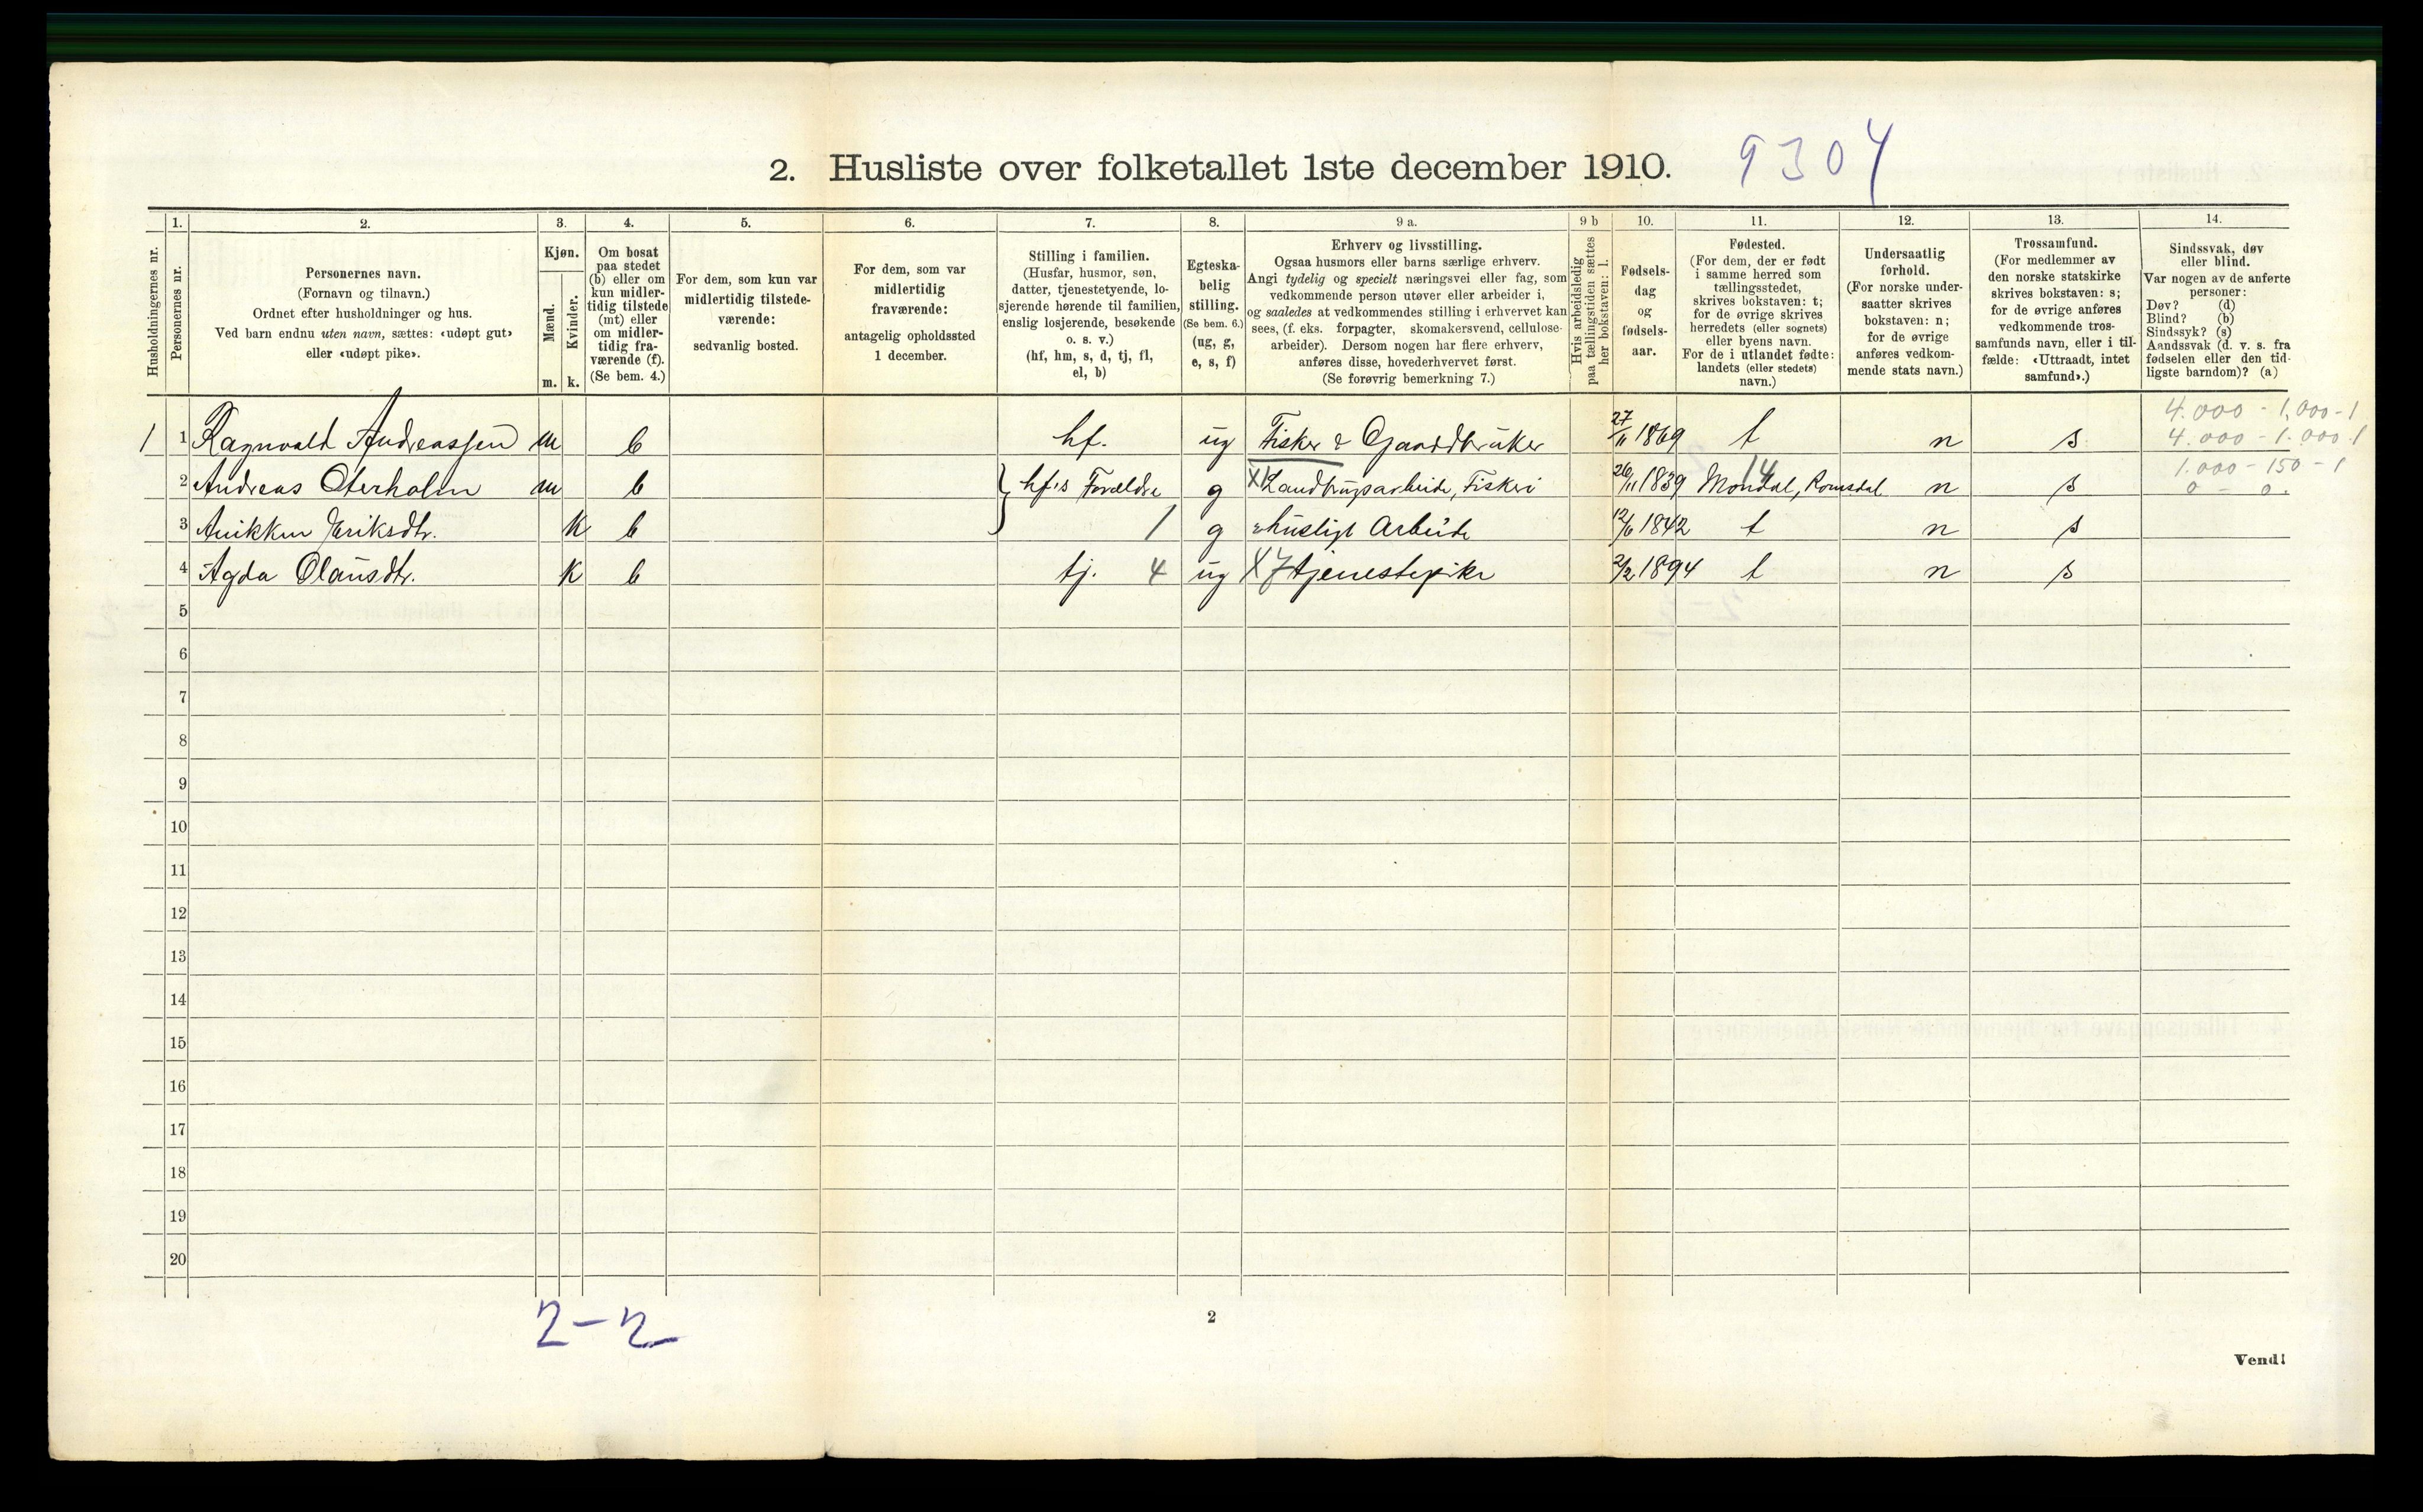 2. Husliste over folketallet 1ste december 1910. 9304
Husholdningernes nr.
1.
Personernes nr.
2.
Personernes navn.
(Fornavn og tilnavn.)
Ordnet efter husholdninger og hus.
Ved barn endnu uten navn, sættes: «udøpt gut»
eller «udøpt pike».
3.
Kjøn.
Mænd.
Kvinder.
m. k.
4.
Om bosat
paa stedet
(b) eller om
kun midler-
tidig tilstede
(mt) eller
om midler-
tidig fra-
værende (f).
(Se bem. 4.)
5.
For dem, som kun var
midlertidig tilstede-
værende:
sedvanlig bosted.
6.
For dem, som var
midlertidig
fraværende:
antagelig opholdssted
1 december.
7.
Stilling i familien.
(Husfar, husmor, søn,
datter, tjenestetyende, lo-
sjerende hørende til familien,
enslig losjerende, besøkende
o. s. v.)
(hf, hm, s, d, tj, fl,
el, b)
8.
Egteska-
belig
stilling.
(Se bem. 6.)
(ug, g,
e, s, f)
9 a.
Erhverv og livsstilling.
Ogsaa husmors eller barns særlige erhverv.
Angi tydelig og specielt næringsvei eller fag, som
vedkommende person utøver eller arbeider i,
og saaledes at vedkommendes stilling i erhvervet kan
sees, (f. eks. forpagter, skomakersvend, cellulose-
arbeider). Dersom nogen har flere erhverv,
anføres disse, hovederhvervet først.
(Se forøvrig bemerkning 7.)
9 b
Hvis arbeidsledig
paa tællingstiden sættes
her bokstaven: l.
10.
Fødsels-
dag
og
fødsels-
aar.
11.
Fødested.
(For dem, der er født
i samme herred som
tællingsstedet,
skrives bokstaven: t;
for de øvrige skrives
herredets (eller sognets)
eller byens navn.
For de i utlandet fødte:
landets (eller stedets)
navn.)
12.
Undersaatlig
forhold.
(For norske under-
saatter skrives
bokstaven: n;
for de øvrige
anføres vedkom-
mende stats navn.)
13.
Trossamfund.
(For medlemmer av
den norske statskirke
skrives bokstaven: s;
for de øvrige anføres
vedkommende tros-
samfunds navn, eller i til-
fælde: «Uttraadt, intet
samfund».)
14.
Sindssvak, døv
eller blind.
Var nogen av de anførte
personer:
Døv? (d)
Blind? (b)
Sindssyk? (s)
Aandssvak (d. v. s. fra
fødselen eller den tid-
ligste barndom)? (a)
4.000 - 1,000 - 1
1 1 Ragnvald Andreassen m b hf. ug Fisker & Gaardbruker 27/11 1869 t n s 4.000 - 1.000 1
1.000 - 150 - 1
2 Andreas Oterholm m b hf's Forældre g X Landbrugsarbeide, Fiskeri 26/11 1839 14 Mondal, Romsdal n s 0 - 0.
3 Anikken Eriksdtr. K b 1 g husligt Arbeide 12/6 1842 t n s
4 Agda Olausdtr. K b tj. 4 ug X 7 tjenestepike 2/2 1894 t n s
5
6
7
8
9
10
11
12
13
14
15
16
17
18
19
20
2 - 2
2
Vend!